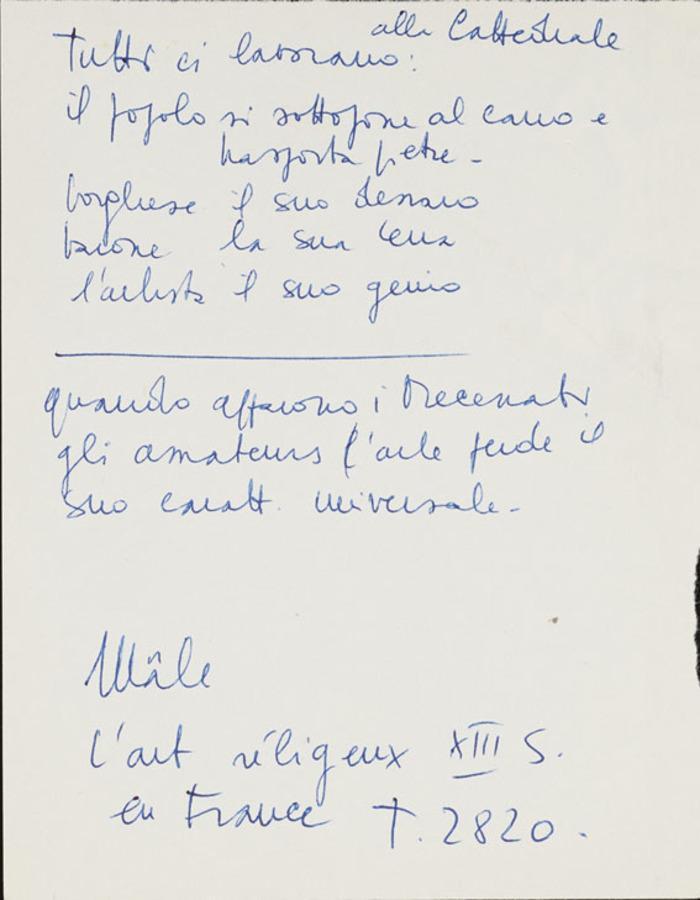 alla Cattedrale
Tutti ci lavorano:
il popolo si sottopone al carro e
trasporta pietre -
borghese il suo denaro
barone la sua terra
l'artista il suo genio
quando appaiono i Mecenati
gli amateurs l'arte perde il
suo caratt. universale -
Mâle
L'art réligeux XIII S.
en France T. 2820.